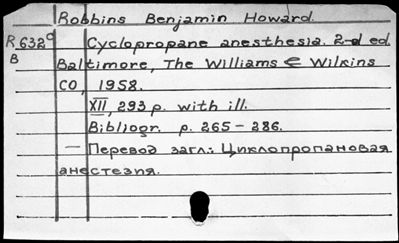 Robbins Benjamin Howard.
R 632⁹ Cyclopropane anesthesia. 2-d ed.
B Baltimore, The Williams & Wilkins
CO, 1958.
XII, 293 p. with ill.
Bibliogr. p. 265-286.
— Перевод загл.: Циклопропановая
анестезия.